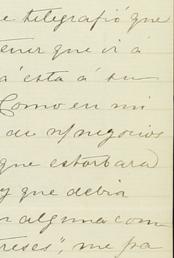 e telegrafió que
tener que ir á
á ésta á su
Como en mi
de n/ negocios
que estorbara
y que debia
n alguna com
treses", me pa